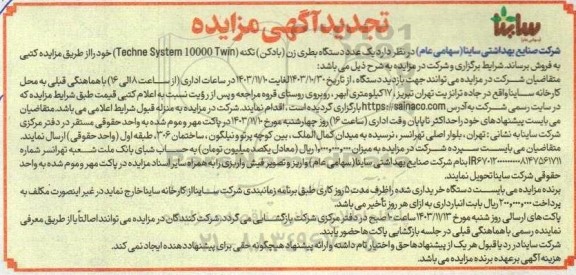 ساینا
تجدید آگهی مزایده
شرکت صنایع بهداشتی ساینا (سهامی عام) در نظر دارد یک عدد دستگاه بطری زن (بادکن) تکنه (Techne System 10000 Twin) خود را از طریق مزایده کتبی
به فروش برساند. شرایط برگزاری و شرکت در مزایده به شرح ذیل می‌باشد:
متقاضیان شرکت در مزایده می‌توانند جهت بازدید دستگاه، از تاریخ ۱۴۰۳/۱۰/۳۰ لغایت ۱۴۰۳/۱۱/۱۰ در ساعات اداری (از ساعت ۸ الی ۱۶) با هماهنگی قبلی به محل
کارخانه ساینا واقع در جاده ترانزیت تهران تبریز، ۱۷ کیلومتری ابهر، روبروی روستای قروه مراجعه و پس از رؤیت نسبت به اعلام کتبی قیمت طبق شرایط مزایده که
در سایت رسمی شرکت به آدرس https://sainaco.com بارگزاری گردیده است، اقدام نمایند. شرکت در مزایده به منزله قبول شرایط اعلامی می‌باشد. متقاضیان
می‌بایست پیشنهادهای خود را حداکثر تا پایان وقت اداری (ساعت ۱۶) روز چهارشنبه مورخ ۱۴۰۳/۱۱/۱۰ در پاکت مهر و موم شده به واحد حقوقی مستقر در دفتر مرکزی
شرکت ساینا به نشانی: تهران، بلوار اصلی تهرانسر، نرسیده به میدان کمال الملک، بین کوچه پرتو و نیلگون، ساختمان ۳۰۶، طبقه اول (واحد حقوقی) ارسال نمایند.
متقاضیان می‌بایست سپرده شرکت در مزایده به مبلغ ۱۰,۰۰۰,۰۰۰ ریال (معادل یکصد میلیون تومان) به حساب شبای بانک ملت شعبه تهرانسر شماره
بنام شرکت صنایع بهداشتی ساینا (سهامی عام) واریز و تصویر فیش واریزی را به همراه سایر اسناد مزایده در پاکت مهر و موم شده به واحد
حقوقی شرکت ساینا تحویل نمایند.
برنده مزایده می‌بایست دستگاه خریداری شده را ظرف مدت ۵ روز کاری طبق برنامه زمانبندی شرکت ساینا از کارخانه ساینا خارج نماید در غیر اینصورت مکلف به
پرداخت ۲۰۰,۰۰۰,۰۰۰ ریال بابت انبارداری به ازای هر روز تأخیر می‌باشد.
پاکت‌های ارسالی روز شنبه مورخ ۱۴۰۳/۱۱/۱۳ ساعت ۱۰ صبح در دفتر مرکزی شرکت بازگشایی می‌گردد. شرکت کنندگان در مزایده می‌توانند اصالتاً یا از طریق معرفی
نماینده رسمی با هماهنگی قبلی در جلسه بازگشایی پاکت‌ها حضور یابند.
شرکت ساینا در رد یا قبول هر یک از پیشنهادها حق و اختیار تام داشته و ارائه پیشنهاد هیچگونه حقی برای پیشنهاد دهنده ایجاد نمی‌کند.
هزینه آگهی بر عهده برنده مزایده می‌باشد.